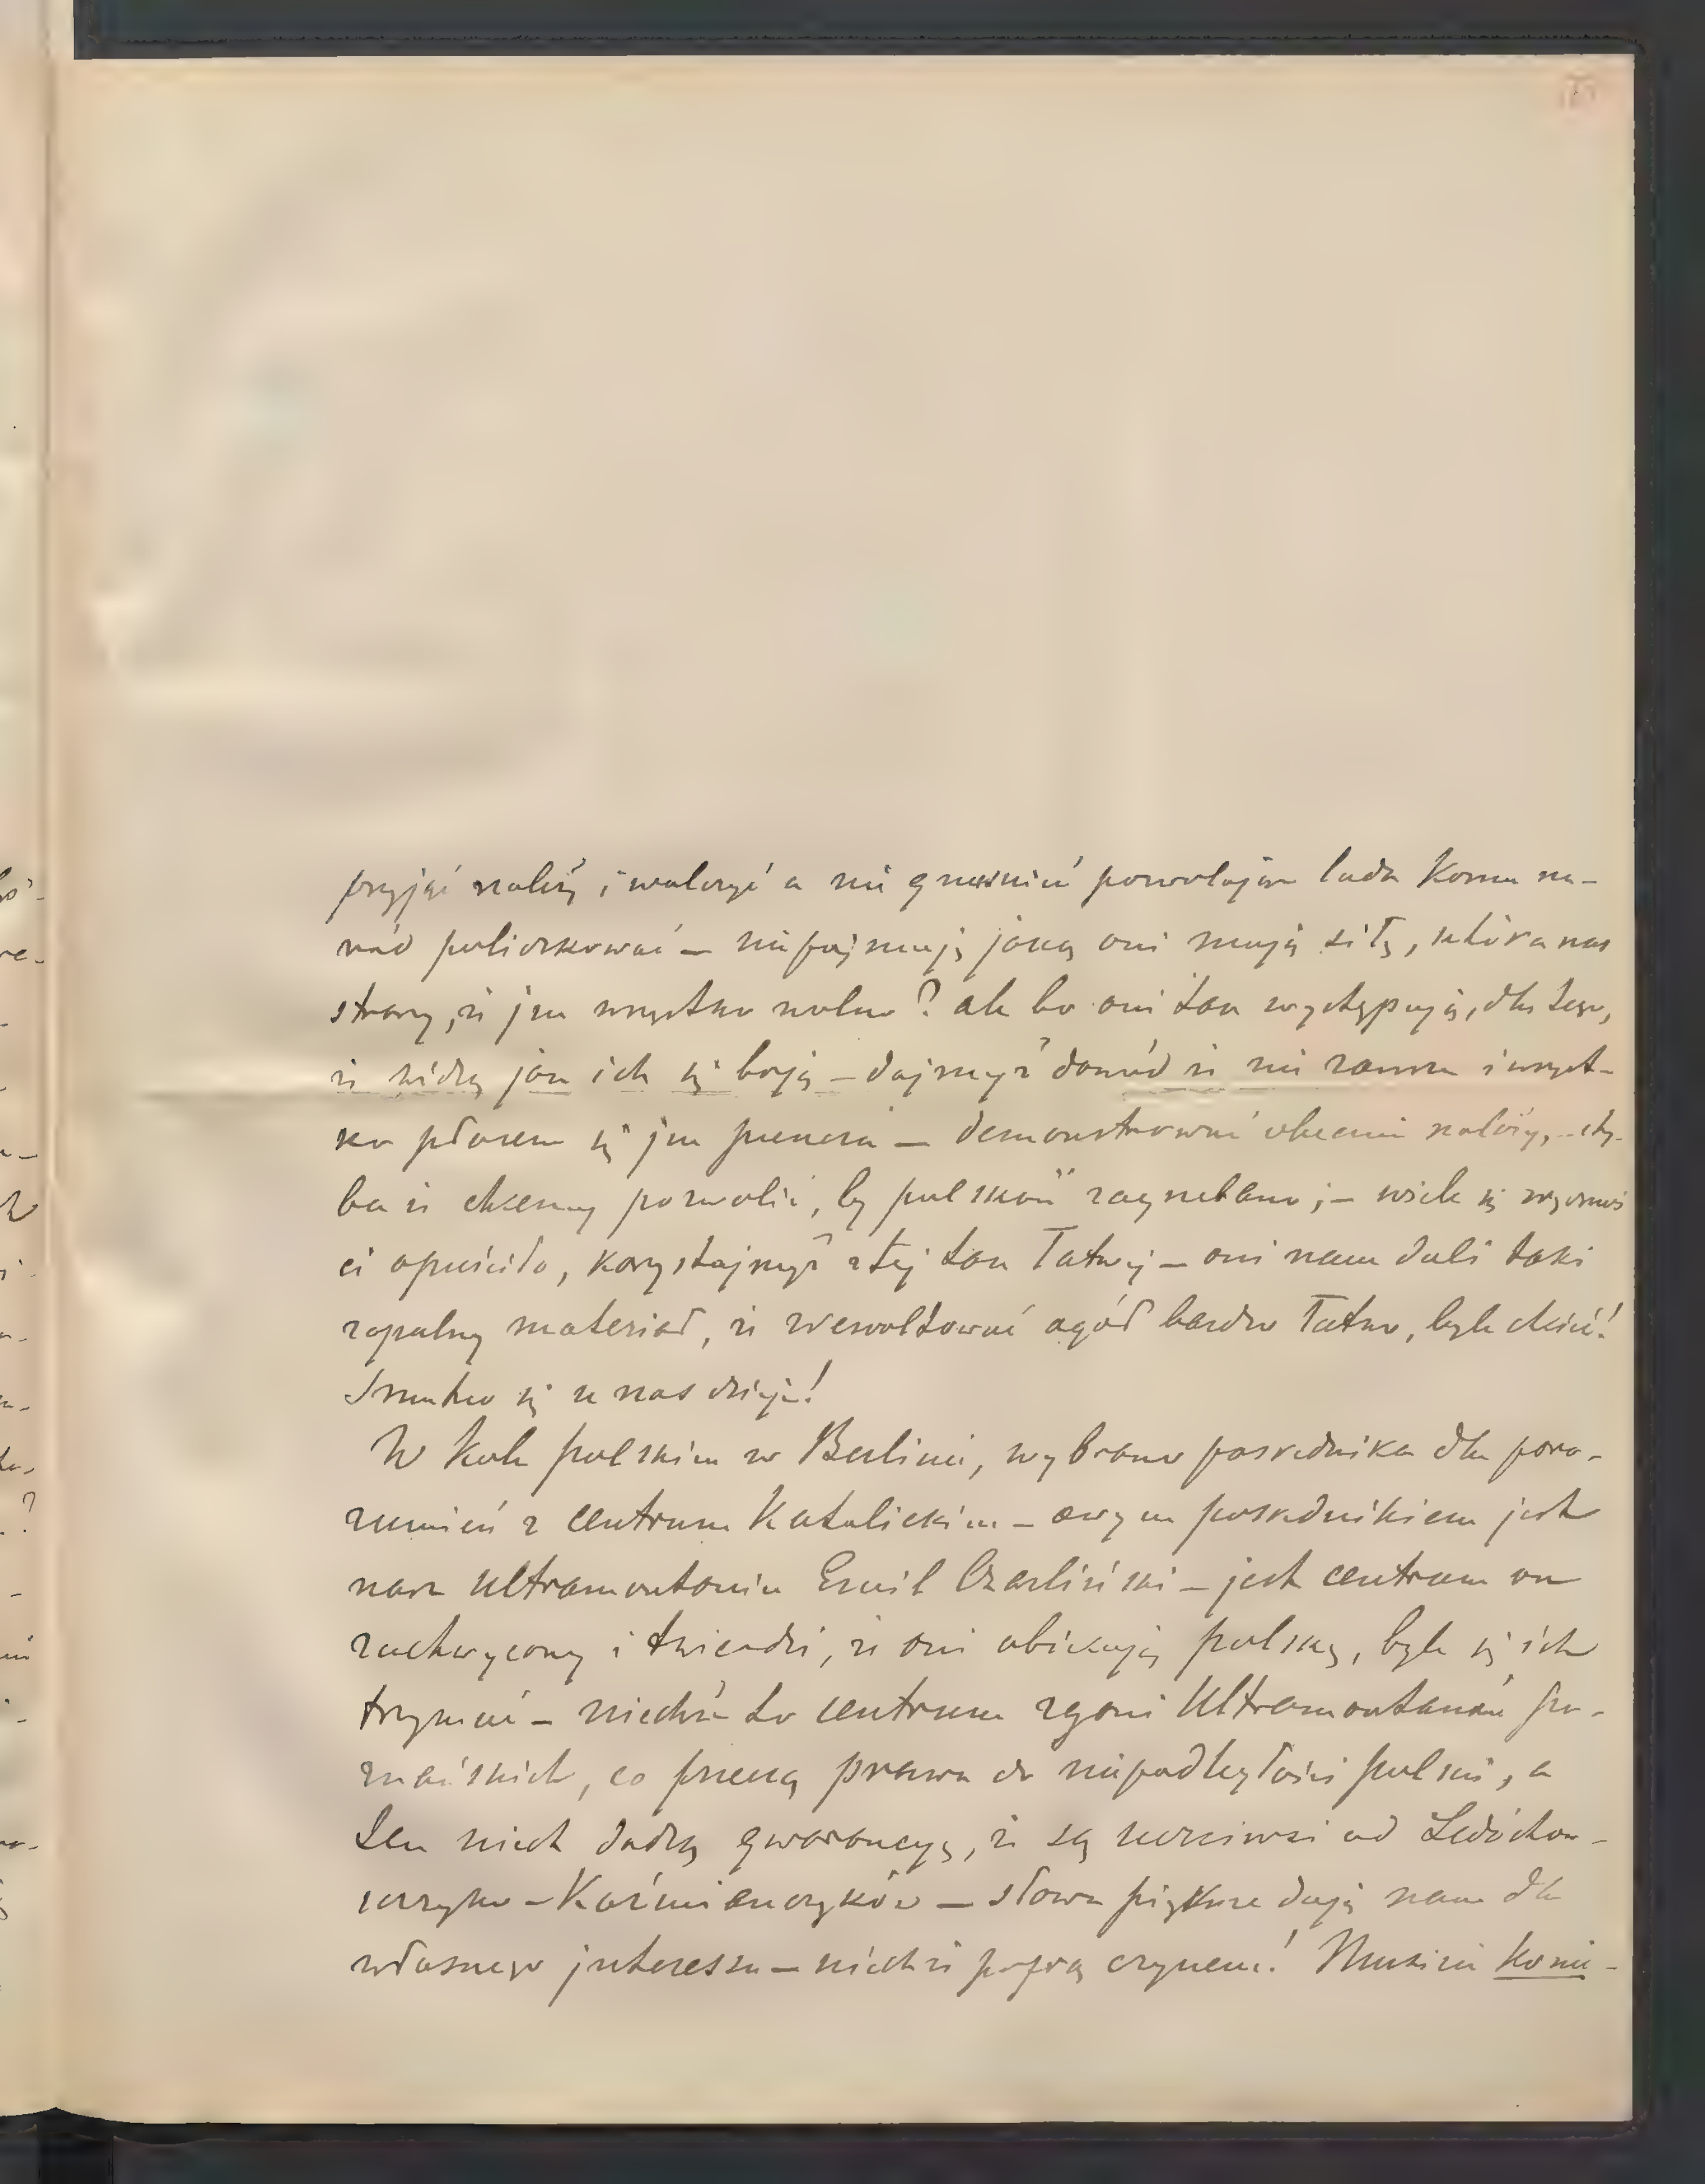 przyjąć należy i walczyć a nie gnuśnieć pozwalając lada komu na-
ród policzkować — nie pojmuję jaką oni mają siłę, która nas
straszy, że jm wszystko wolno? ale bo oni tak występują, dla tego,
że widzą jak ich się boją — dajmyż dowód że nie zawsze i wszyst-
ko płazem się jm puszcza — demonstrować obecnie należy, chy-
ba że chcemy pozwolić, by polskość zagnebiano; — wiele się
ci opuściło, korzystajmyż z tej tak łatwej — oni nam dali taki
zapalny materiał, że zrewoltować ogół bardzo łatwo, byle chcieć!
Smutno się u nas dzieje!
W kole polskim w Berlinie, wybrano posrednika dla poro-
zumień z centrum Katolickim — owym posrednikiem jest
nasz Ultramontanin Emil Czarliński — jest centrum on
zachwycony i twierdzi, że oni obiecują polskę, byle się ich
trzymać — niechże to centrum zgani Ultramontanów po-
znańskich, co przeczą prawa do niepodległości polski, a
ten niech dadzą gwarancyę, że są uczciwsi od Ledóchow-
sczyko - Koźmianczyków — słowa piękne dają nam dla
własnego jnteressu — niechże poprą czynem! Musicie konie-